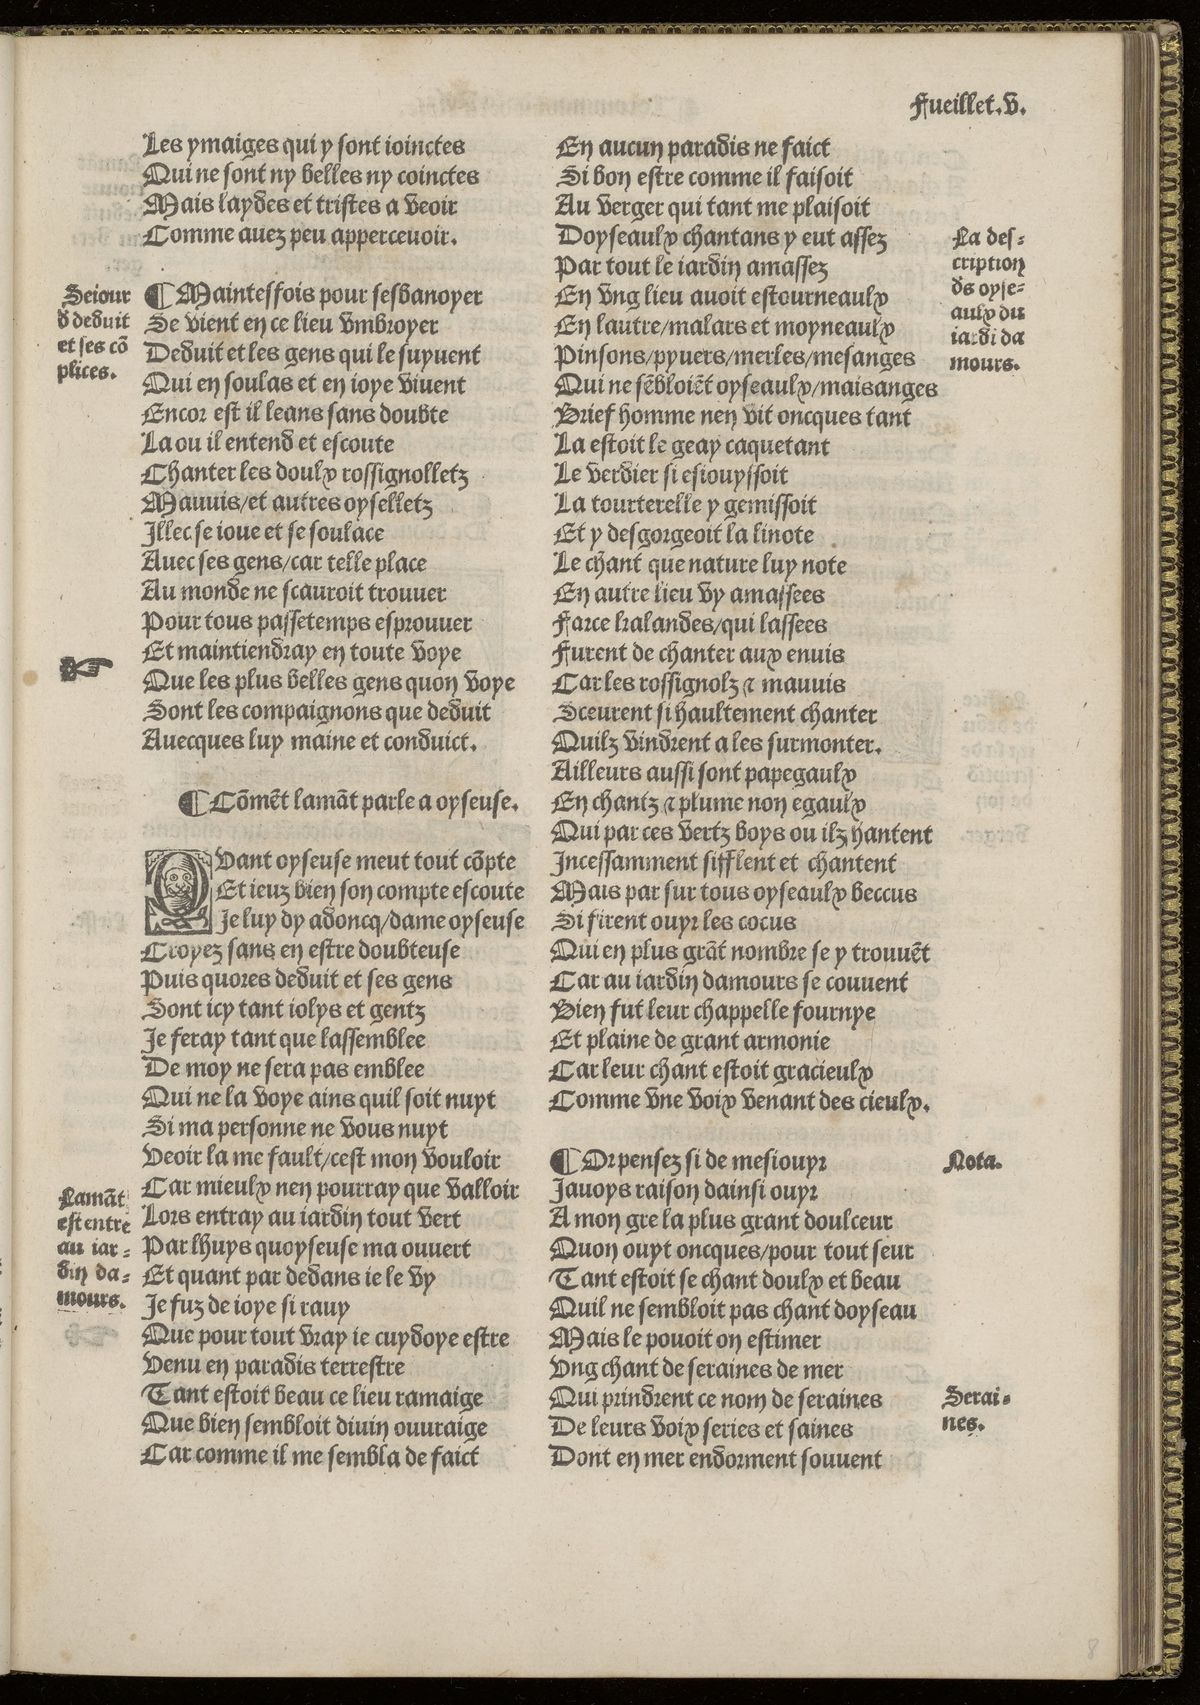 Fueillet.V.
Les ymaiges qui y sont ioinctes
Qui ne sont ny belles ny coinctes
Mais laydes et tristes a veoir
Comme auez peu apperceuoir.
Seiour
d deduit
et ses cō
plices.
¶ Maintesfois pour sesbanoyer
Se vient en ce lieu vmbroyer
Deduit et les gens qui le suyuent
Qui en soulas et en ioye viuent
Encor est il leans sans doubte
La ou il entend et escoute
Chanter les doulx rossignolletz
Mauuis/et autres oyselletz
Illec se ioue et se soulace
Auec ses gens/car telle place
Au monde ne scauroit trouuer
Pour tous passetemps esprouuer
Et maintiendray en toute voye
Que les plus belles gens quon voye
Sont les compaignons que deduit
Auecques luy maine et conduict.
¶ Cōmēt lamāt parle a oyseuse.
QVant oyseuse meut tout cōpte
Et ieuz bien son compte escoute
Je luy dy adoncq/dame oyseuse
Croyez sans en estre doubteuse
Puis quores deduit et ses gens
Sont icy tant iolys et gentz
Je feray tant que lassemblee
De moy ne sera pas emblee
Qui ne la voye ains quil soit nuyt
Si ma personne ne vous nuyt
Veoir la me fault/cest mon vouloir
Car mieulx nen pourray que valloir
Lamāt
est entre
au iar-
din da-
mours.
Lors entray au iardin tout vert
Par lhuys quoyseuse ma ouuert
Et quant par dedans ie le vy
Je fuz de ioye si rauy
Que pour tout vray ie cuydoye estre
Venu en paradis terrestre
Tant estoit beau ce lieu ramaige
Que bien sembloit diuin ouuraige
Car comme il me sembla de faict
En aucun paradis ne faict
Si bon estre comme il faisoit
Au verger qui tant me plaisoit
Doyseaulx chantans y eut assez
Par tout le iardin amassez
La des-
cription
ds oyse-
aulx du
iardi da
mours.
En vng lieu auoit estourneaulx
En lautre/malars et moyneaulx
Pinsons/pyuers/merles/mesanges
Qui ne sēbloiēt oyseaulx/mais anges
Brief homme nen vit oncques tant
La estoit le geay caquetant
Le verdier si esiouyssoit
La tourterelle y gemissoit
Et y desgorgeoit la linote
Le chant que nature luy note
En autre lieu vy amassees
Farce kalandes/qui lassees
Furent de chanter aux enuis
Car les rossignolz ⁊ mauuis
Sceurent si haultement chanter
Quilz vindrent a les surmonter.
Ailleurs aussi sont papegaulx
En chantz ⁊ plume non egaulx
Qui par ces vertz boys ou ilz hantent
Incessamment sifflent et chantent
Mais par sur tous oyseaulx beccus
Si firent ouyr les cocus
Qui en plus grāt nombre se y trouuēt
Car au iardin damours se couuent
Bien fut leur chappelle fournye
Et plaine de grant armonie
Car leur chant estoit gracieulx
Comme vne voix venant des cieulx.
¶ Or pensez si de mesiouyr
Nota.
Jauoys raison dainsi ouyr
A mon gre la plus grant doulceur
Quon ouyt oncques/pour tout seur
Tant estoit se chant doulx et beau
Quil ne sembloit pas chant doyseau
Mais le pouoit on estimer
Vng chant de seraines de mer
Qui prindrent ce nom de seraines
De leurs voix series et saines
Dont en mer endorment souuent
Serai-
nes.
8